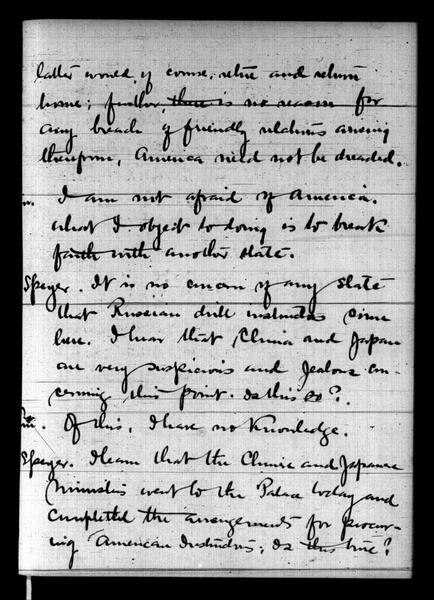 latter would, of course, retire and return
home; further, there is no reason for
any breach of friendly relations arising
therefrom, America need not be dreaded.
I am not afraid of America.
what I object to doing is to break
faith with another state.
Speyer. It is no concern of any state
that Russian drill instructors come
here. I hear that China and Japan
are very suspicious and Jealous con-
cerning this point. Is this so?
Of this, I have no Knowledge.
Speyer. I learn that the Chinese and Japanese
Ministers went to the Palace today and
completed the arrangements for procur-
ing American Instructors; Is this true?